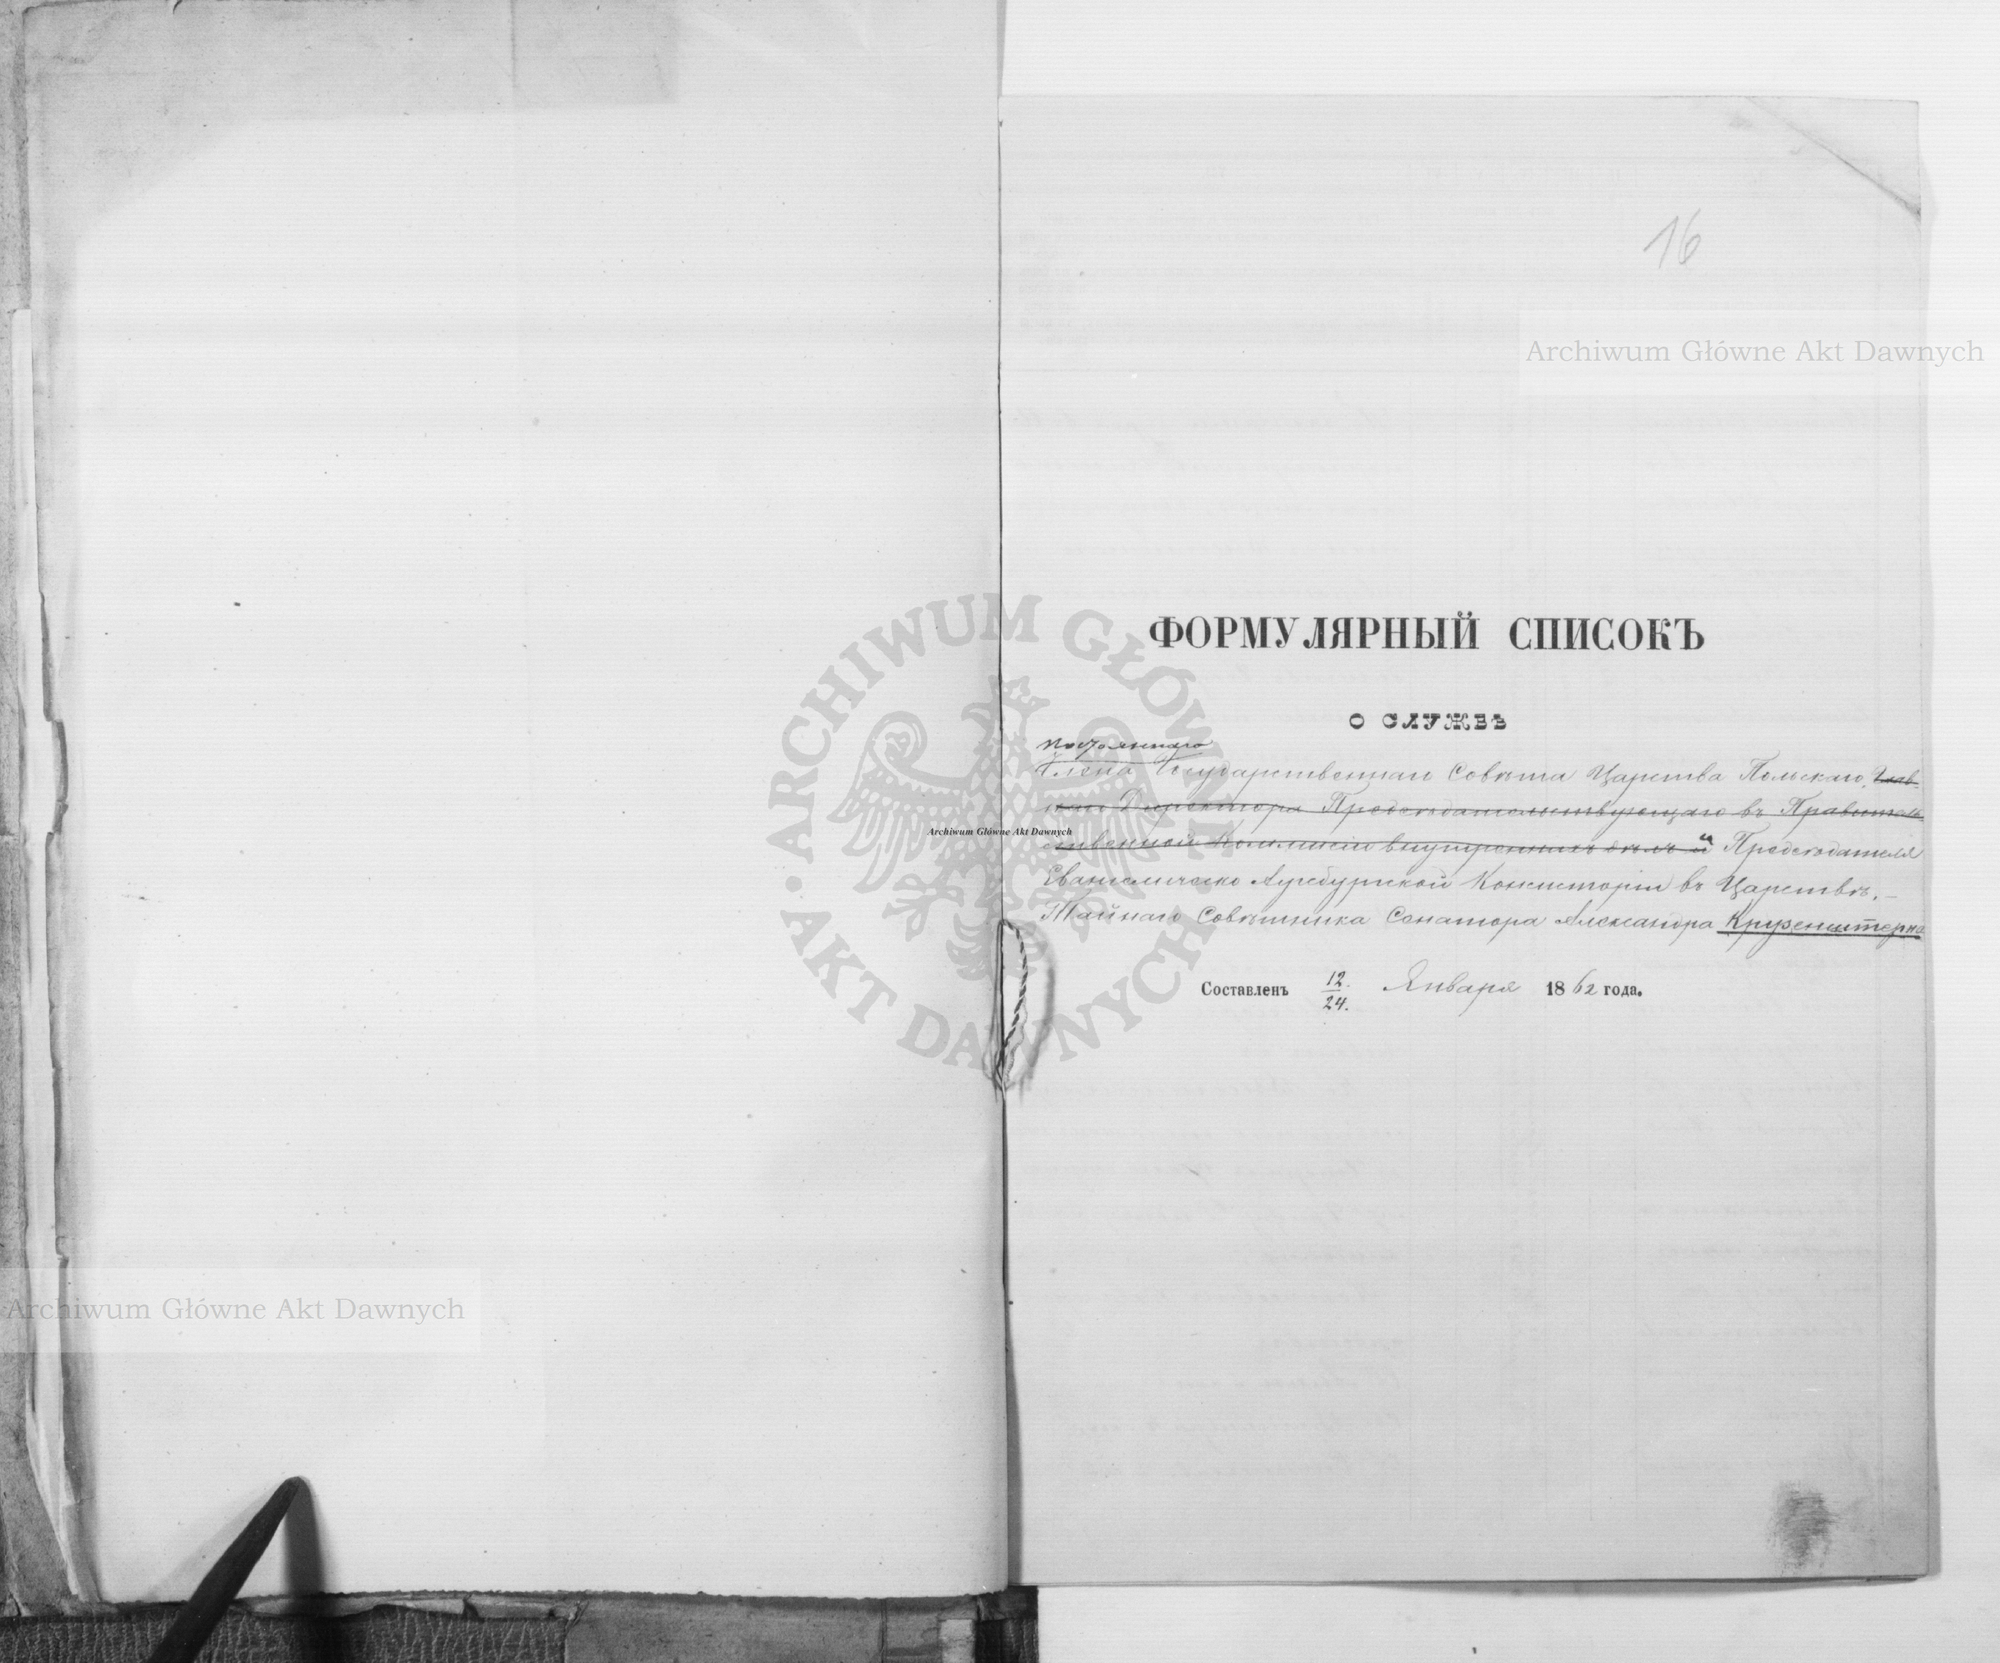 16
Archiwum Główne Akt Dawnych
ФОРМУЛЯРНЫЙ СПИСОКЪ
О СЛУЖБѢ
постояннаго
Члена Государственнаго Совѣта Царства Польскаго, Глав-
наго Директора Предсѣдательствующаго въ Правитель-
ственной Коммисіи внутреннихъ дѣлъ и и Предсѣдателя
Евангелическо Аугсбургской Консисторіи въ Царствѣ, –
Тайнаго Совѣтника Сенатора Александра Крузенштерна
Составленъ 12./24. Января 1862 года.
ARCHIWUM GŁÓWNE AKT DAWNYCH
Archiwum Główne Akt Dawnych
Archiwum Główne Akt Dawnych